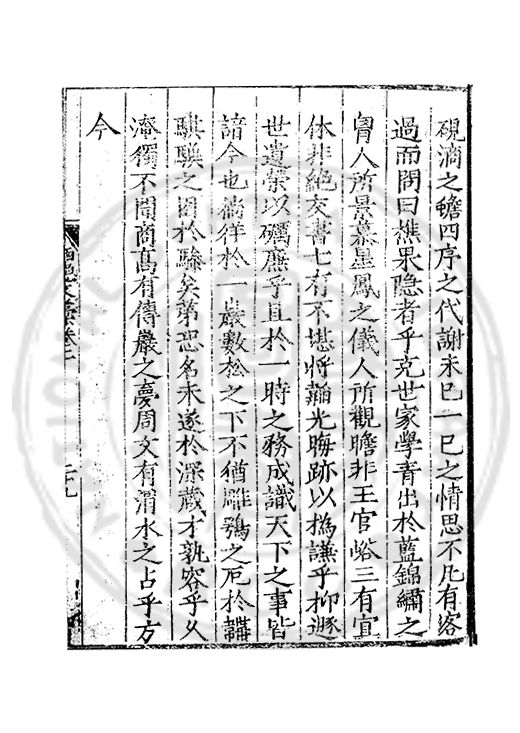 硯滴之蟾四序之代謝未已一己之情思不凡有容
過而問曰樵果隐者乎克世家學青出於藍錦繡之
胷人所景慕星鳳之儀人所觀瞻非王官峪三有宜
休非絶交書七有不堪將韜光晦跡以撝謙乎抑遯
世遺榮以礪廉乎且於一時之務成識天下之事皆
諳今也徜徉於一巖數松之下不猶雕鶚之厄於韝
騏驥之困於驂矣第恐名未遂於深藏才孰容乎久
淹獨不聞商髙有傳巖之夢周文有渭水之占乎方
今
卷二
二十九